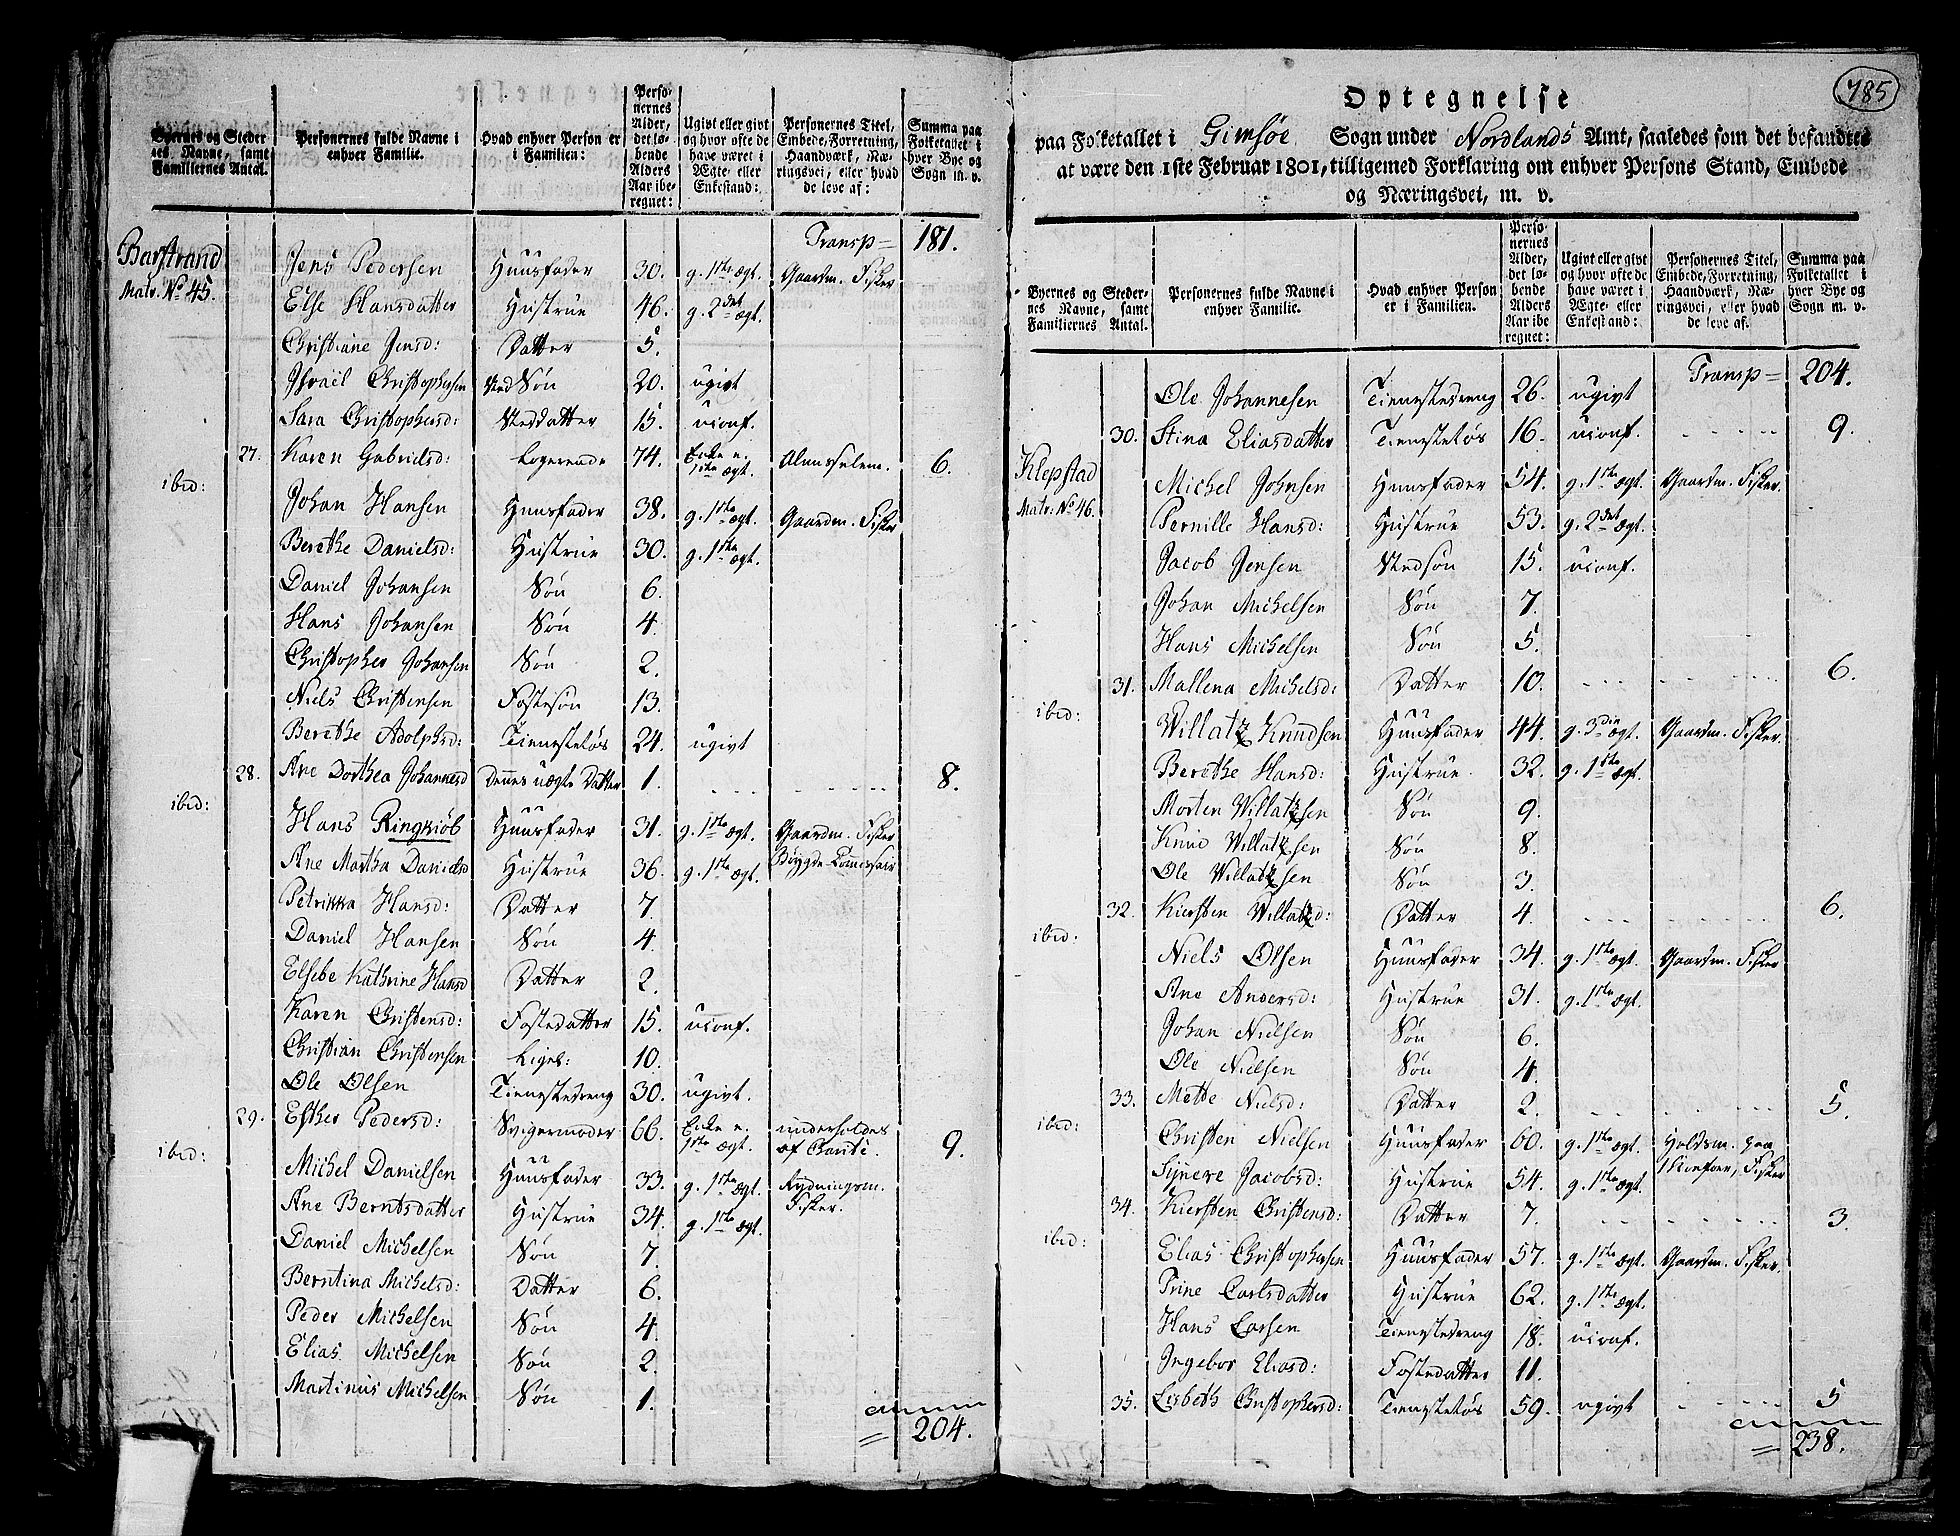 Byernes og Stedernes Navne, samt Familiernes Antal.
Personernes fulde Navne i enhver Familie.
Hvad enhver Person er i Familien:
Personernes Alder, det løbende Alders Aar iberegnet:
Ugivt eller givt og hvor ofte de have været i Ægte- eller Enkestand:
Personernes Titel, Embede, Forretning, Haandværk, Næringsvei, eller hvad de leve af:
Summa paa Folketallet i hver Bye og Sogn m. v.
Transp = 181.
Barstrand Jens Pedersen Huusfader 30. g. 1ste ægt. Gaardm. Fisker
Matr. No 45. Else Hansdatter Hustrue 46. g. 2det ægt.
Christiane Jensd: Datter 5.
Israil Christophersen Sted Søn 20. ugivt
Sara Christophersd: Steddatter 15. uconf.
27. Karen Gabrielsd: Logerende 74. Enke e. 1ste ægt. Almisselem. 6.
ibid: Johan Hansen Huusfader 38. g. 1ste ægt. Gaardm. Fisker
Berethe Danielsd: Hustrue 30. g. 1ste ægt.
Daniel Johansen Søn 6.
Hans Johansen Søn 4.
Christopher Johansen Søn 2.
Niels Christensen Fostersøn 13.
Berethe Adolphsd: Tienestetøs 24. ugivt
28. Ane Dorthea Johannesd Dennes uægte Datter 1. 8.
ibid: Hans Ringkiøb Huusfader 31. g. 1ste ægt. Gaardm. Fisker
Ane Martha Danielsd Hustrue 36. g. 1ste ægt. Bøygde
Petrikka Hansd: Datter 7.
Daniel Hansen Søn 4.
Elsebe Kathrine Hansd Datter 2.
Karen Christensd: Fosterdatter 15. uconf.
Christian Christensen Ligel: 10.
Ole Olsen Tienestedreng 30. ugivt.
29. Esther Pedersd: Svigermoder 66. Enke e. 1ste ægt. underholdes af 9.
ibid: Michel Danielsen Huusfader 33. g. 1ste ægt. Rydningsm. Fisker.
Ane Berntsdatter Hustrue 34. g. 1ste ægt.
Daniel Michelsen Søn 7.
Berntina Michelsd: Datter 6.
Peder Michelsen Søn 4.
Elias Michelsen Søn 2.
Martinus Michelsen Søn 1.
= 204.
785
Optegnelse
paa Folketallet i Gimsøe Sogn under Nordlands Amt, saaledes som det befandtes
at være den 1ste Februar 1801, tilligemed Forklaring om enhver Persons Stand, Embede
og Næringsvei, m. v.
Byernes og Stedernes Navne, samt Familiernes Antal.
Personernes fulde Navne i enhver Familie.
Hvad enhver Person er i Familien.
Personernes Alder, det løbende Alders Aar iberegnet:
Ugivt eller givt og hvor ofte de have været i Ægte- eller Enkestand:
Personernes Titel, Embede, Forretning, Haandværk, Næringsvei, eller hvad de leve af.
Summa paa Folketallet i hver Bye og Sogn m. v.
Transp = 204.
Ole Johannesen Tienestedreng 26. ugivt
30. Stina Eliasdatter Tienestetøs 16. uconf. 9.
Klepstad Michel Johnsen Huusfader 54. g. 1ste ægt. Gaardm. Fisker.
Matr: No 46. Pernille Hansd: Hustrue 53. g. 2det ægt.
Jacob Jensen Stedsøn 15. uconf.
Johan Michelsen Søn 7.
Hans Michelsen Søn 5.
31. Mallena Michelsd: Datter 10. 6.
ibid: Willatz Knudsen Huusfader 44. g. 3die ægt. Gaardm. Fisker.
Berethe Hansd: Hustrue 32. g. 1ste ægt.
Morten Willatzsen Søn 9.
Knud Willatzsen Søn 8.
Ole Willatzsen Søn 3.
32. Kiersten Willatzd: Datter 4. 6.
ibid: Niels Olsen Huusfader 34. g. 1ste ægt. Gaardm. Fisker
Ane Andersd: Hustrue 31. g. 1ste ægt.
Johan Nielsen Søn 6.
Ole Nielsen Søn 4.
33. Mette Nielsd: Datter 2. 5.
ibid: Christen Nielsen Huusfader 60. g. 1ste ægt. Holdsm. paa
Synere Jacobsd: Hustrue 54. g. 1ste ægt. Fisker
34. Kiersten Christensd: Datter 7. 3.
ibid: Elias Christophersen Huusfader 57. g. 1ste ægt. Gaardm. Fisker.
Trine Carlsdatter Hustrue 62. g. 1ste ægt.
Hans Larsen Tienestedreng 18. uconf.
Ingebor Eliasd: Fosterdatter 11.
35. Lisbeth Christophersd: Tienestetøs 59. ugivt 5
= 238.